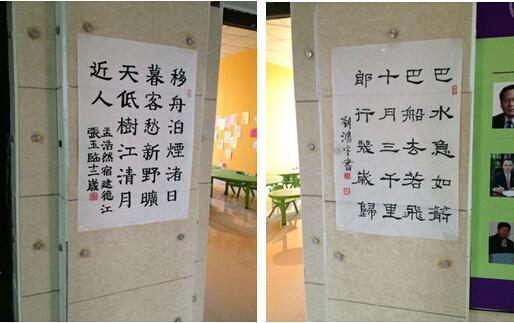 移舟泊煙渚日
暮客愁新野曠
天低樹江清月
近人
孟浩然宿建德江
張玉臨十二歲
巴水急如箭
巴船去若飛
十月三千里
郎行幾歲歸
劉鴻宇書